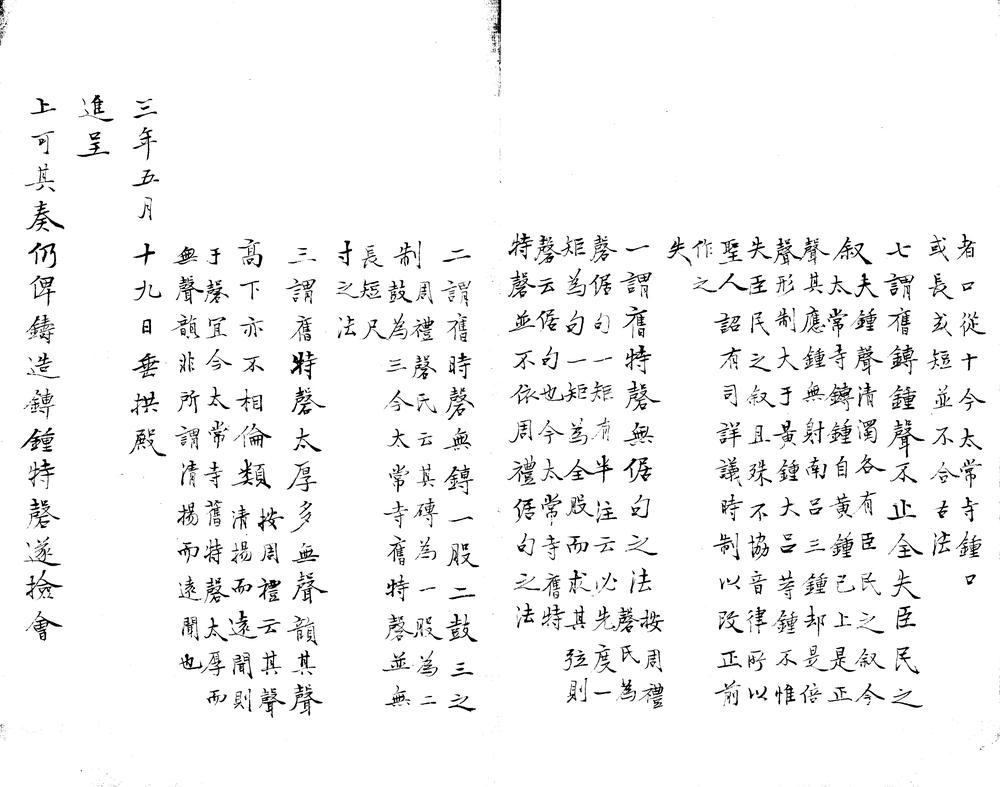 者口從十今太常寺鍾口
或長或短並不合古法
七謂舊鎛鍾聲不止全失臣民之
叙夫鍾聲清濁各有臣民之叙今
太常寺鎛鍾自黃鍾已上是正
聲其應鍾無射南呂三鍾却是倍
聲形制大于黃鍾大呂等鍾不惟
失臣民之叙且殊不協音律所以
聖人詔有司詳議時制以改正前
作之
失
一謂舊特磬無倨句之法按周禮
磬氏為
磬倨句一矩有半注云必先度一
矩為句一矩為全股而求其弦則
磬云倨句也今太常寺舊特
特磬並不依周禮倨句之法
二謂舊時磬無鎛一股二鼓三之
制周禮磬氏云其磚為一股為二
鼓為三今太常寺舊特磬並無
長短尺
寸之法
三謂舊特磬太厚多無聲韻其聲
高下亦不相倫類按周禮云其聲
清揚而遠聞則
于磬宜今太常寺舊特磬太厚而
無聲韻非所謂清揚而遠聞也
三年五月十九日垂拱殿
進呈
上可其奏仍俾鑄造鎛鍾特磬遂撿會